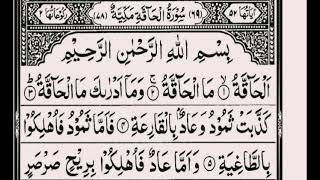 اٰیَاتُهَا ٥٢ (٦٩) سُوْرَةُ الْحَآقَّةِ مَكِّیَّةٌ (٧٨) رُكُوْعَاتُهَا ٢
بِسْمِ اللهِ الرَّحْمٰنِ الرَّحِیْمِ
اَلْحَآقَّةُ ۙ﴿١﴾ مَا الْحَآقَّةُ ۚ﴿٢﴾ وَمَاۤ اَدْرٰىكَ مَا الْحَآقَّةُ ؕ﴿٣﴾
كَذَّبَتْ ثَمُوْدُ وَعَادٌۢ بِالْقَارِعَةِ ﴿٤﴾ فَاَمَّا ثَمُوْدُ فَاُهْلِكُوْا
بِالطَّاغِیَةِ ﴿٥﴾ وَاَمَّا عَادٌ فَاُهْلِكُوْا بِرِیْحٍ صَرْصَرٍ